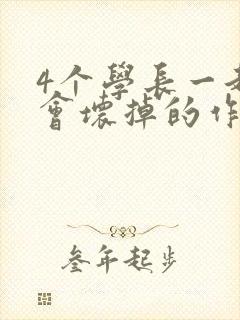 4个學長一
會壞掉的作
叁年起步